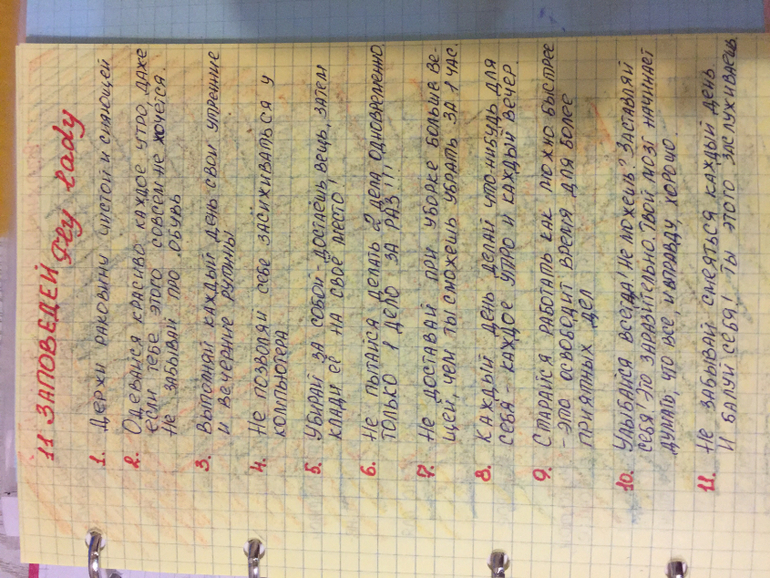 11 ЗАПОВЕДЕЙ Fly Lady
1. Держи раковину чистой и сияющей
2. Одевайся красиво каждое утро, даже
если тебе этого совсем не хочется.
Не забывай про обувь
3. Выполняй каждый день свои утренние
и вечерние рутины
4. Не позволяй себе засиживаться у
компьютера
5. Убирай за собой - достаёшь вещь, затем
клади её на своё место!
6. Не пытайся делать 2 дела одновременно
только 1 дело за раз!!!
7. Не доставай при уборке больше ве-
щей, чем ты сможешь убрать за 1 час.
8. Каждый день делай что-нибудь для
себя - каждое утро и каждый вечер.
9. Старайся работать как можно быстрее
- это освободит время для более
приятных дел
10. Улыбайся всегда! Не можешь? Заставляй
себя! Это заразительно. Твой мозг начинает
думать, что все, и вправду, хорошо.
11. Не забывай смеяться каждый день.
И балуй себя! Ты этого заслуживаешь